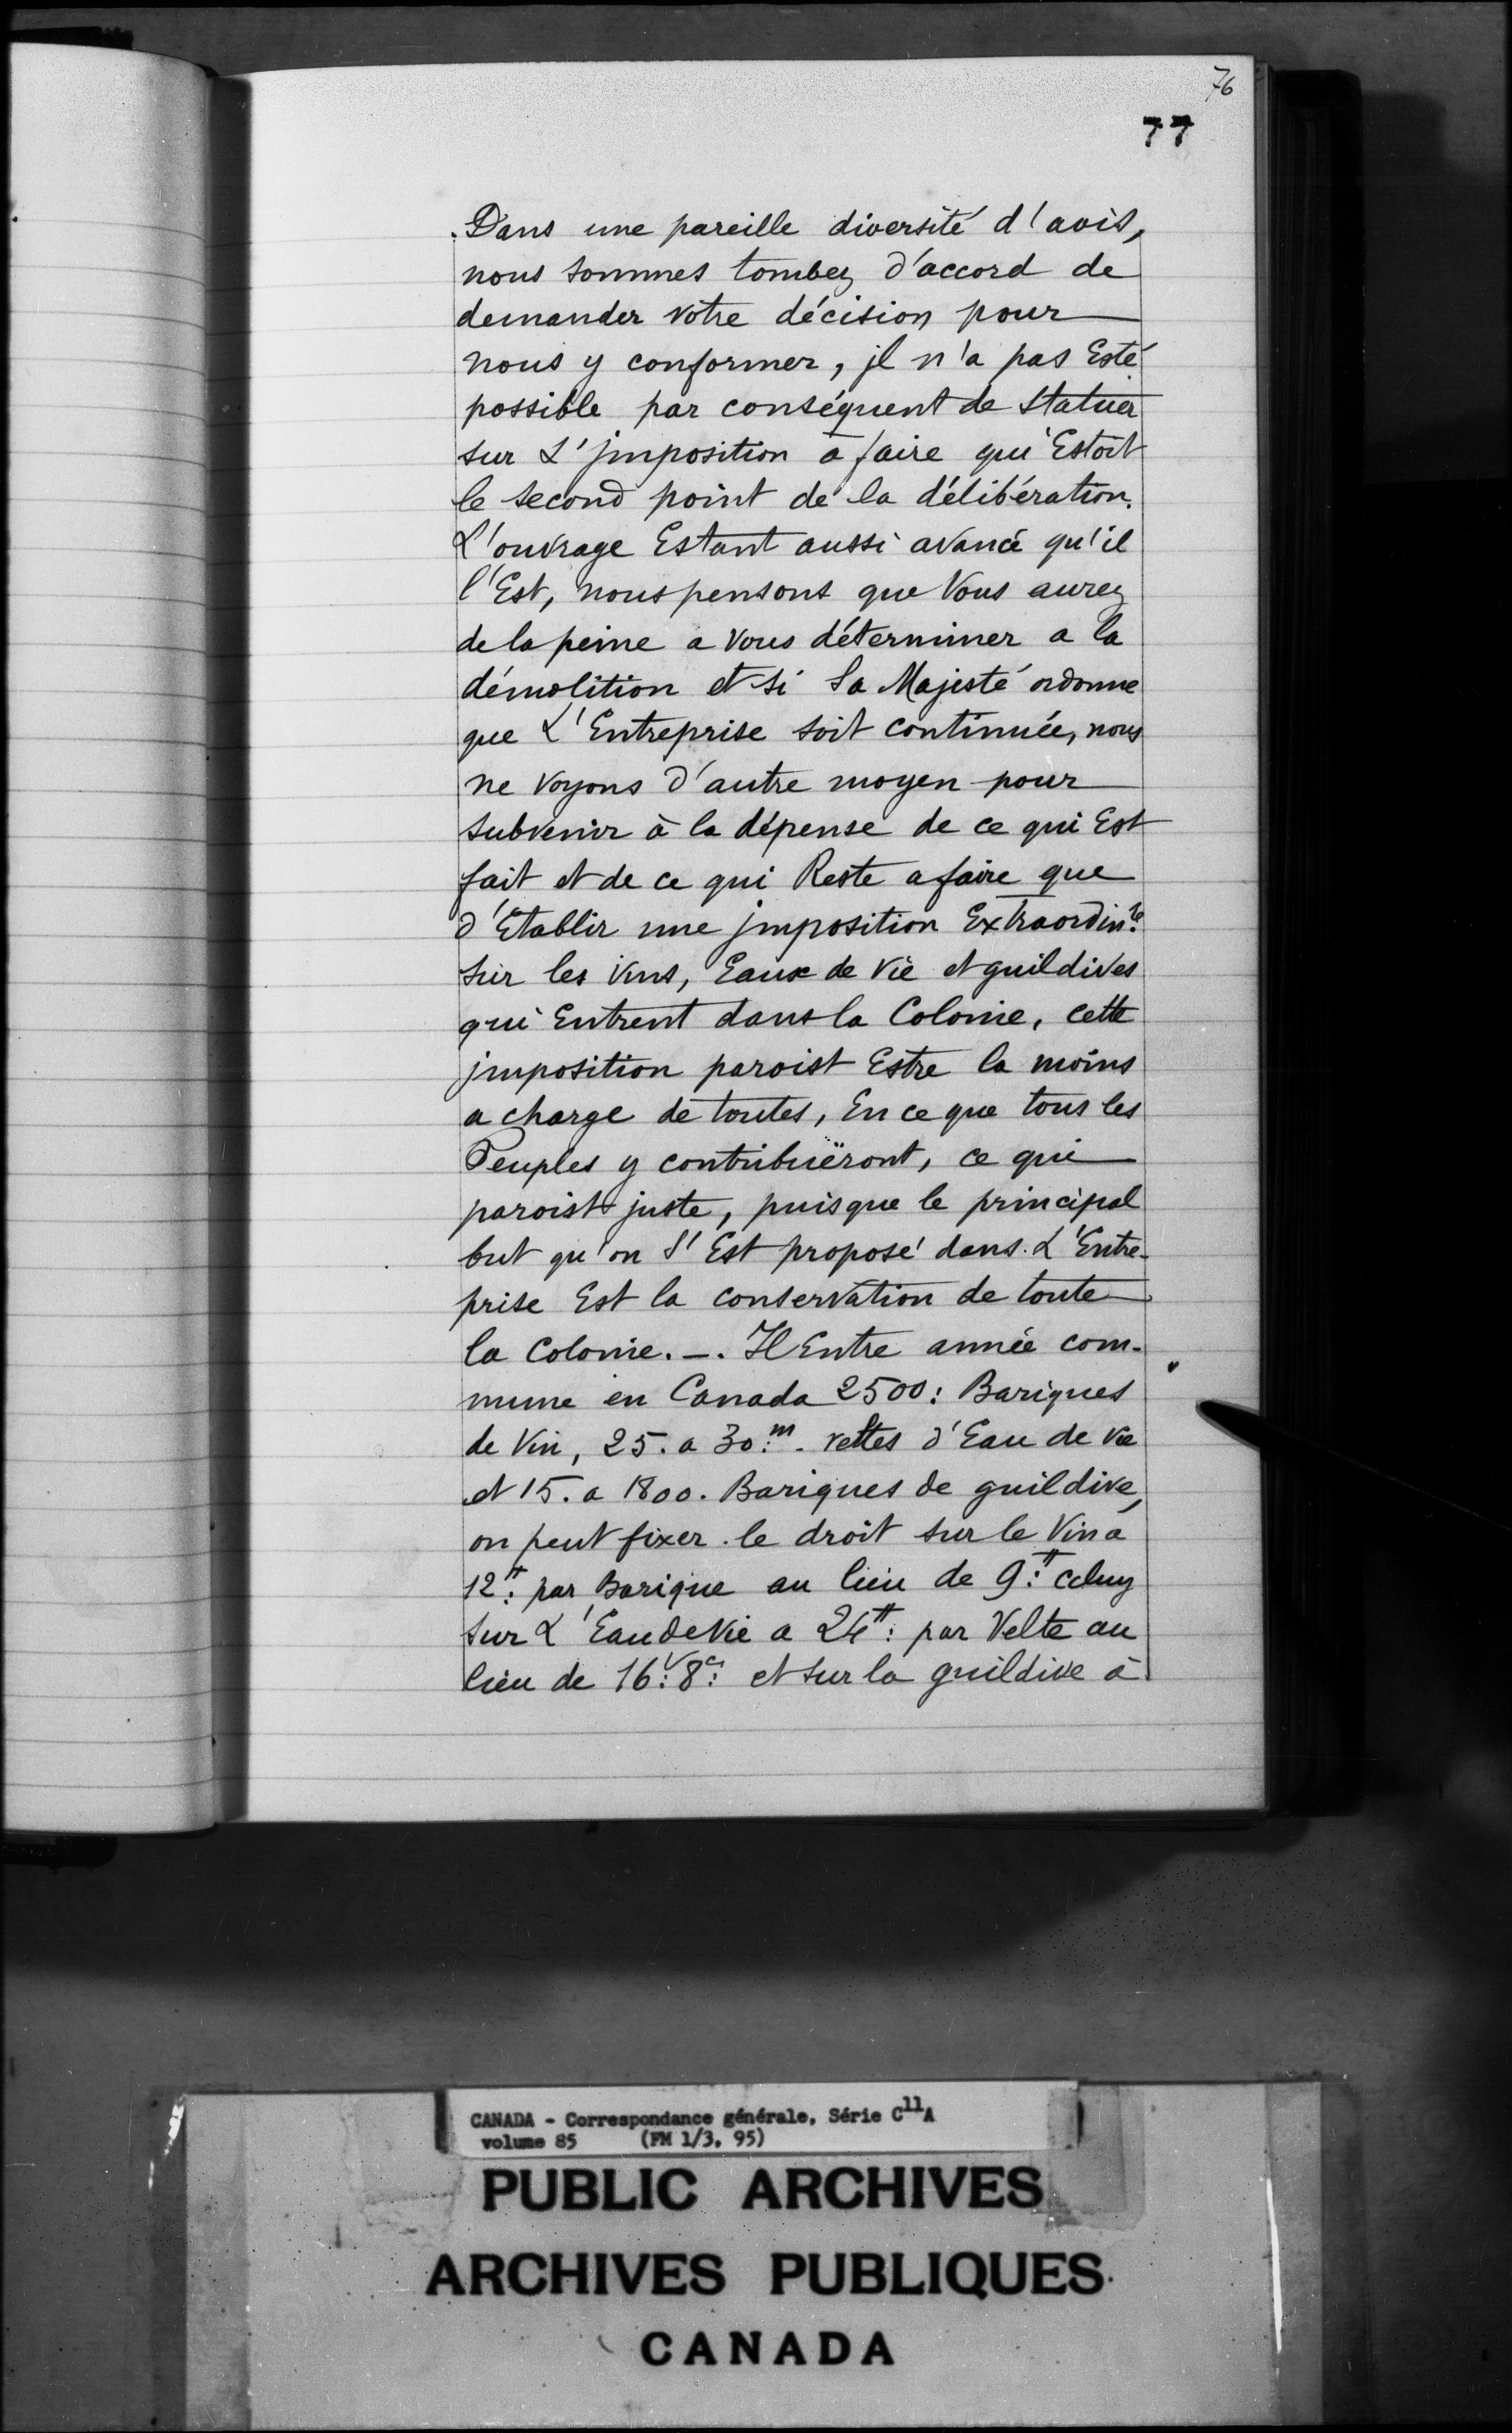 76
77
Dans une pareille diversité d'avis,
nous sommes tombez d'accord de
demander votre décision pour
nous y conformer, jl n'a pas Esté
possible par conséquent de statuer
sur L'jmposition à faire qui Estoit
le second point de la délibération.
L'ouvrage Estant aussi avancé qu'il
l'Est, nous pensons que Vous aurez
de la peine a vous déterminer a la
démolition et si Sa Majesté ordonne
que L'Entreprise soit continuée, nous
ne voyons d'autre moyen pour
subvenir à la dépense de ce qui Est
fait et de ce qui Reste a faire que
d'Etablir une jmposition Extraordin.re
sur les vins, Eaux de Vie et guildives
qui Entrent dans la Colonie, cette
jmposition paroist Estre la moins
a charge de toutes, En ce que tous les
Peuples y contribuëront, ce qui
paroist juste, puisque le principal
but qu'on S'Est proposé dans L'Entre-
prise Est la conservation de toute
la Colonie. _. Il Entre année com-
mune en Canada 2500: Bariques
de Vin, 25. a 30.m veltes d'Eau de vie
et 15. a 1800. Bariques de guildive,
on peut fixer le droit sur le Vin a
12.tt par Barique au lieu de 9.tt celuy
sur L'Eau de Vie a 24tt: par Velte au
lieu de 16: 8: et sur la guildive à
CANADA - Correspondance générale, Série C11A
volume 85 (FM 1/3, 95)
PUBLIC ARCHIVES
ARCHIVES PUBLIQUES
CANADA